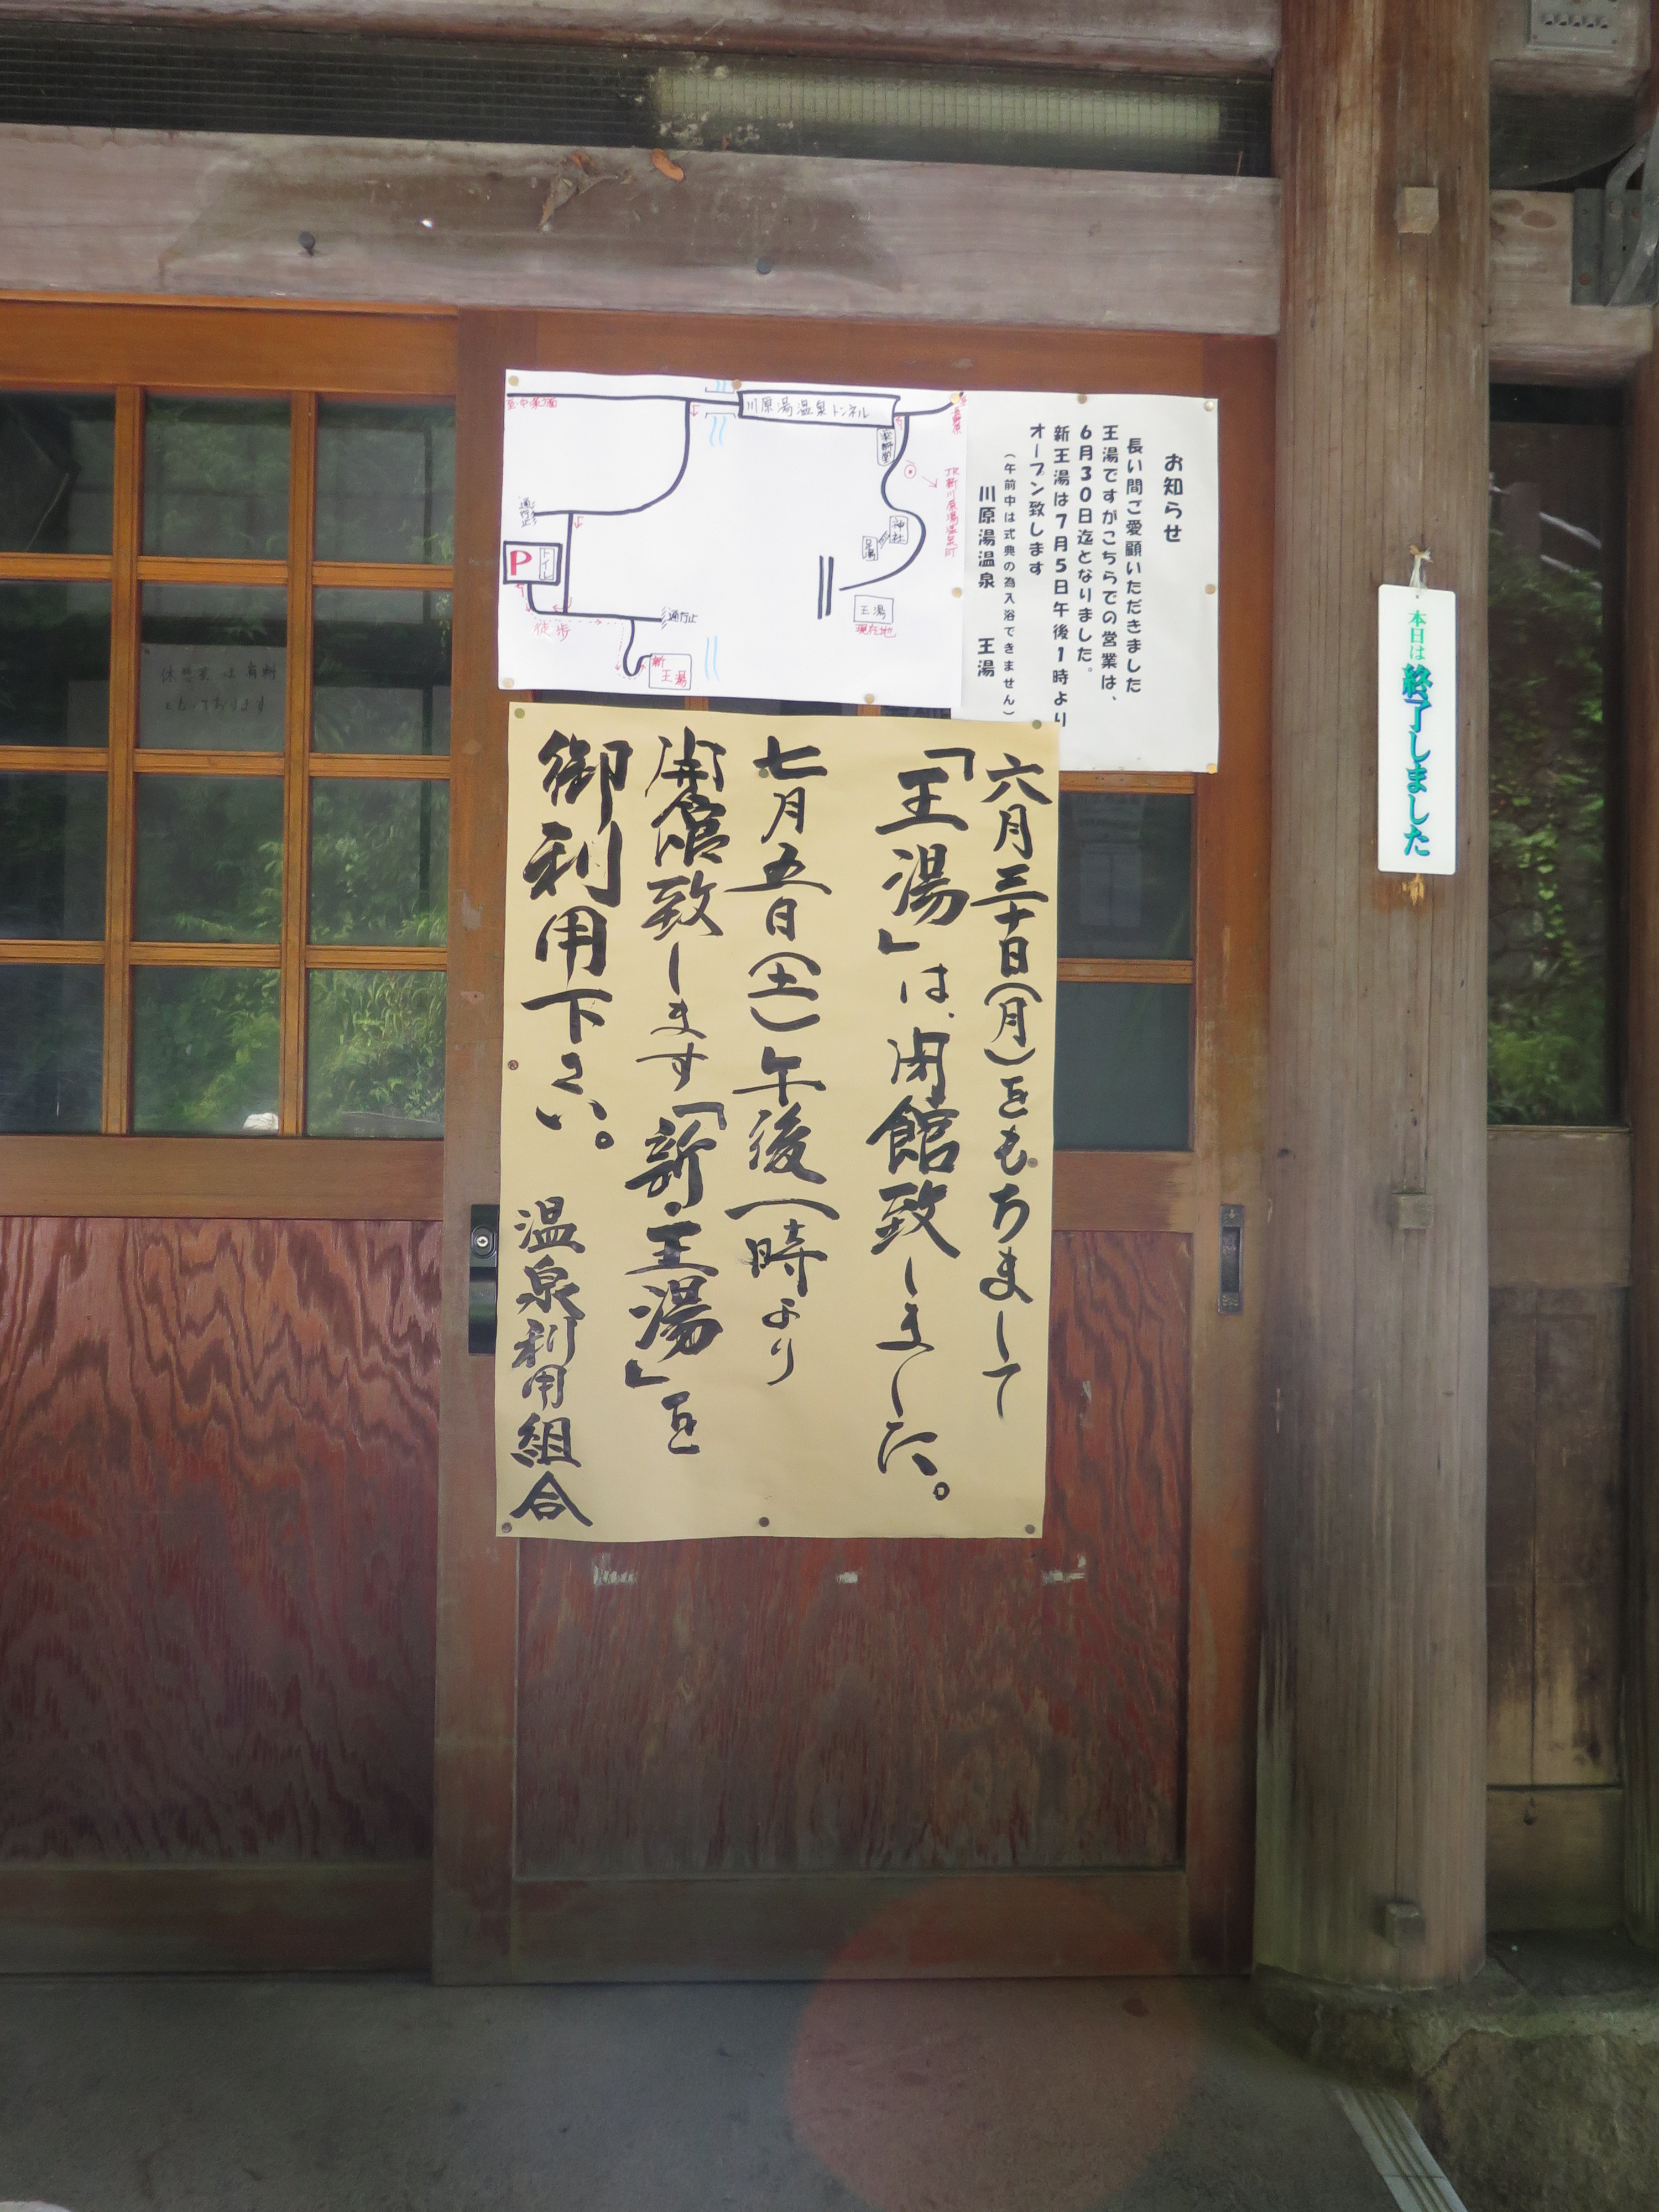 お知らせ
長い間ご愛顧いただきました
王湯ですがこちらでの営業は、
6月30日迄となりました。
新王湯は7月5日午後1時より
オープン致します
(午前中は式典の為入浴できません)
川原湯温泉 王湯
川原湯温泉トンネル
JR新川原湯温泉町
神社
足湯
王湯
現在地
通行止
P
トイレ
通行止
徒歩
新
王湯
本日は終了しました
六月三十日(月)をもちまして
「王湯」は、閉館致しました。
七月五日(土)午後一時より
開館致します「新・王湯」を
御利用下さい。
温泉利用組合